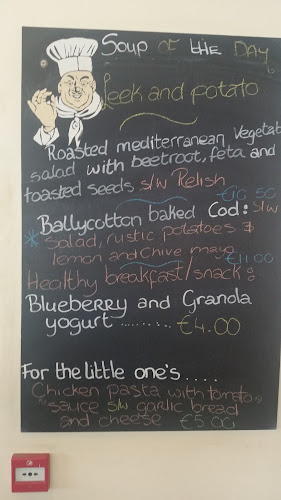 Soup of the Day
Leek and potato
Roasted mediterranean Vegetab
salad with beetroot, feta and
toasted seeds s/w Relish
€10.50
Ballycotton baked Cod: s/w
* Salad, rustic potatoes &
lemon and chive mayo
€11.00
Healthy breakfast/snack:
Blueberry and Granola
yogurt ......... €4.00
For the little one's ....
Chicken pasta with tomato
sauce s/w garlic bread
and cheese €5.00